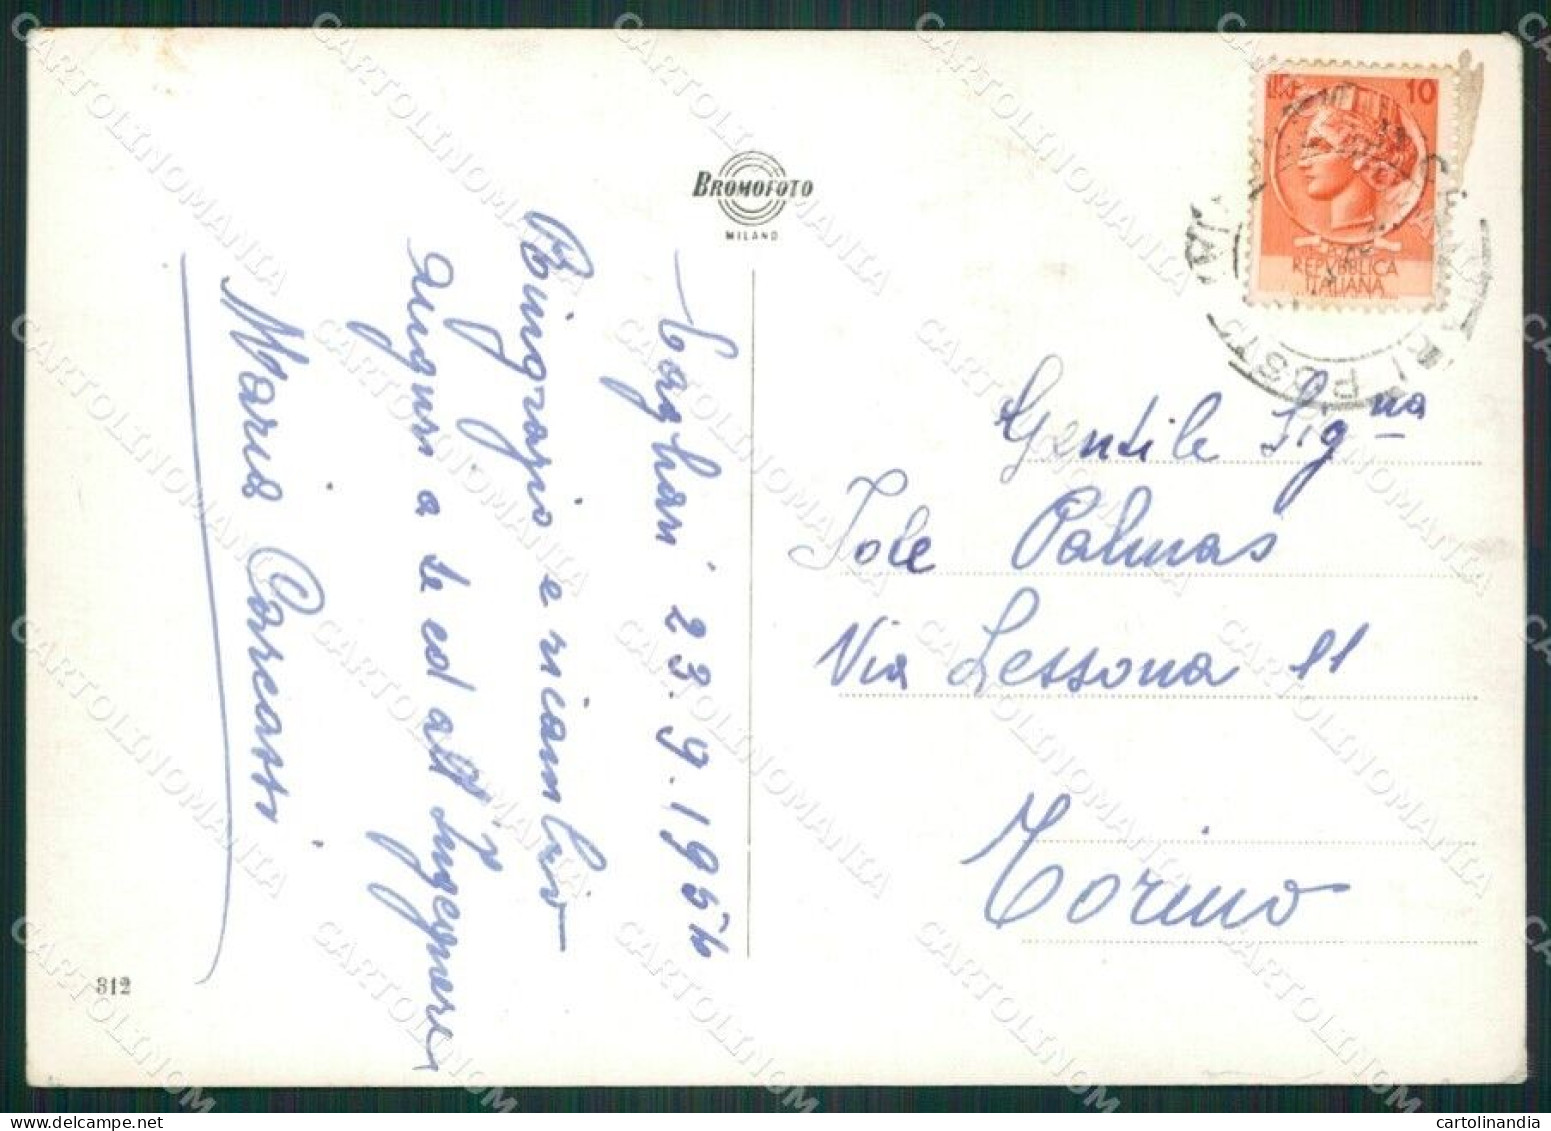 BROMOFOTO
MILANO
LIRE 10
REPUBBLICA
ITALIANA
CAGLIARI POSTA
Cagliari 23.9.195
Ringrazio e ricambio
auguri a te ed all'Ingegnere
Maria Corcassi
Gentile Sig.na
Iole Palmas
Via Lessona 11
Torino
312
CARTOLINOMANIA
cartolinandia